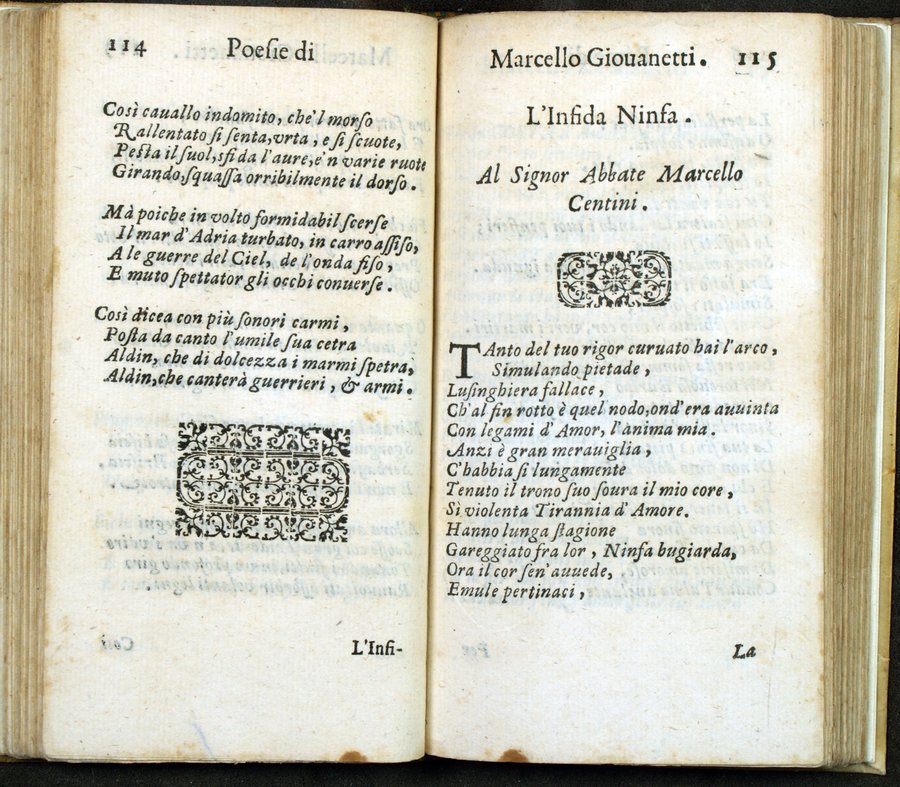 114 Poesie di
Così cauallo indomito, che'l morso
Rallentato si senta, vrta, e si scuote,
Pesta il suol, sfida l'aure, e'n varie ruote
Girando, squassa orribilmente il dorso.
Mà poiche in volto formidabil scerse
Il mar d'Adria turbato, in carro assiso,
A le guerre del Ciel, de l'onda fiso,
E muto spettator gli occhi conuerse.
Così dicea con più sonori carmi,
Posta da canto l'umile sua cetra
Aldin, che di dolcezza i marmi spetra,
Aldin, che canterà guerrieri, & armi.
L'Infi-
Marcello Giouanetti. 115
L'Infida Ninfa.
Al Signor Abbate Marcello
Centini.
TAnto del tuo rigor curuato hai l'arco,
Simulando pietade,
Lusinghiera fallace,
Ch'al fin rotto è quel nodo, ond'era auuinta
Con legami d'Amor, l'anima mia.
Anzi è gran merauiglia,
C'habbia sì lungamente
Tenuto il trono suo soura il mio core,
Sì violenta Tirannia d'Amore.
Hanno lunga stagione
Gareggiato fra lor, Ninfa bugiarda,
Ora il cor sen'auuede,
Emule pertinaci,
La